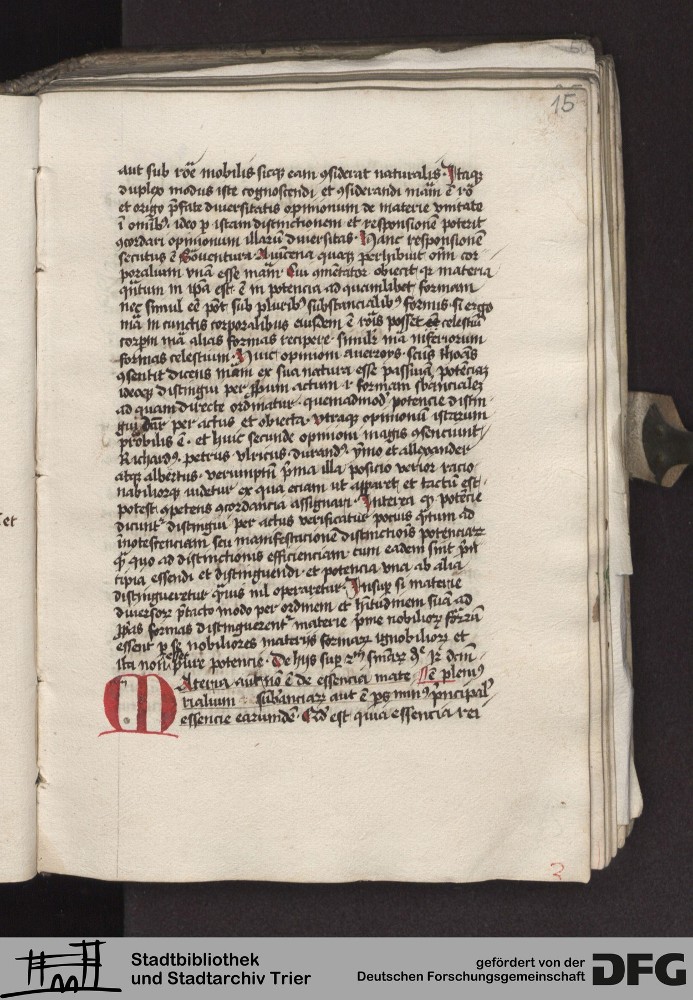 15
aut sub rōe mobilis sicq; eam ꝯsiderat naturalis. Itaq;
duplex modus iste cognoscendi et ꝯsiderandi mam̄ ē rō
et origo p̄fate diversitatis opinionum de materie vnitate
ī omib; ideo ꝑ istam distinctionem et responsionem poterit
ꝯcordari opinionum illarū diversitas. Hanc responsionē
secutus ē Boventura. Avicena quaq; perhibuit oīm cor
poralium vnā esse mam̄. Cui ꝯmētator obiecit qꝛ materia
qn̄tum in ipā est. ē in potencia ad quamlibet formam
nec simul eē pōt sub pluribꝰ substancialibꝰ formis. si ergo
mā in cunctis corporalibus eiusdem ē rōis posset celestiū
corpm mā alias formas recipere. simılr mā inferiorum
formas celestium. Huic opinioni averroys. scūs thoās
ꝯsentit dicens mām ex sua natura esse passivā potēciā
ideoq; distingui per ipsum actum et formam sbancialeꝫ
ad quam directe ordinatur. quemadmodꝰ potencie distin
gui dn̄r per actus et obiecta. vtraq; opinionū istarum
probilis ē. et huic secunde opinioni magis ꝯsenciunt
Richardꝰ. petrus. vlricus. durandꝰ. ymo et allexander
atq; albertus. verumptn̄ pma illa posicio verior racio
nabiliorq; videtur ex qua eciam ut apparet et tactū est
potest ꝯpetens ꝯcordancia assignari. Interea qꝫ potēcie
dicunt̄ distingui per actus verificatur pocius qn̄tum ad
īnotescenciam seu manifestacionē distinctiōis potenciaꝝ
qꝫ quo ad distinctionis efficienciam. cum eadem sint pn̄
cipia essendi et distinguendi. et potencia vna ab alia
distingueretur qmvis nil operaretur. Insuꝑ si materie
diversoꝝ ptacto modo per ordinem et hitudinem suā ad
ꝓprias formas distinguerent̄ materie pme nobilioꝝ forāꝝ
essent ꝑ se nobiliores materijs formaꝝ ignobilioꝝ et
ita non essent pure potencie. De hijs suꝑ 2m smāꝝ dc̄ 12 dcm̄
Ateria aut nō ē de essencia mate Nē plenꝰ
rialium substanciaꝝ aut ē ꝑs minꝰ pncipal
essencie earundē. Qd est quia essencia rei
et
2
Stadtbibliothek
und Stadtarchiv Trier
gefördert von der
Deutschen Forschungsgemeinschaft
DFG